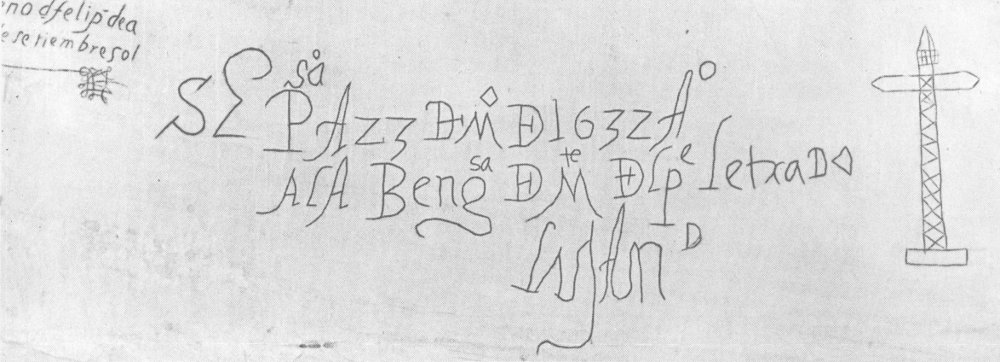 no dfelip̄dea
e setiembresol
SE Psᵃ̊ A 23 DE Mº DE 1632 Aº
A LA Bengsᵃ DE Mᵗᵉ DE Lpᵉ LetraDO
LujAn D